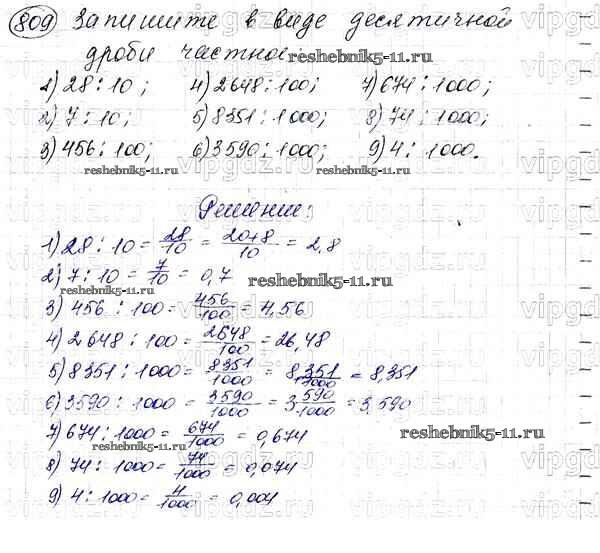 809 Запишите в виде десятичной
дроби частное:
1) 28 : 10; 4) 2648 : 100; 7) 674 : 1000;
2) 7 : 10; 5) 8351 : 1000; 8) 74 : 1000;
3) 456 : 100; 6) 3590 : 1000; 9) 4 : 1000.
reshebnik5-11.ru
reshebnik5-11.ru
reshebnik5-11.ru
Решение:
1) 28 : 10 = 28/10 = 20+8/10 = 2,8
2) 7 : 10 = 7/10 = 0,7
reshebnik5-11.ru
3) 456 : 100 = 456/100 = 4,56
4) 2648 : 100 = 2648/100 = 26,48
5) 8351 : 1000 = 8351/1000 = 8 351/1000 = 8,351
6) 3590 : 1000 = 3590/1000 = 3 590/1000 = 3,590
7) 674 : 1000 = 674/1000 = 0,674
reshebnik5-11.ru
8) 74 : 1000 = 74/1000 = 0,074
9) 4 : 1000 = 4/1000 = 0,004